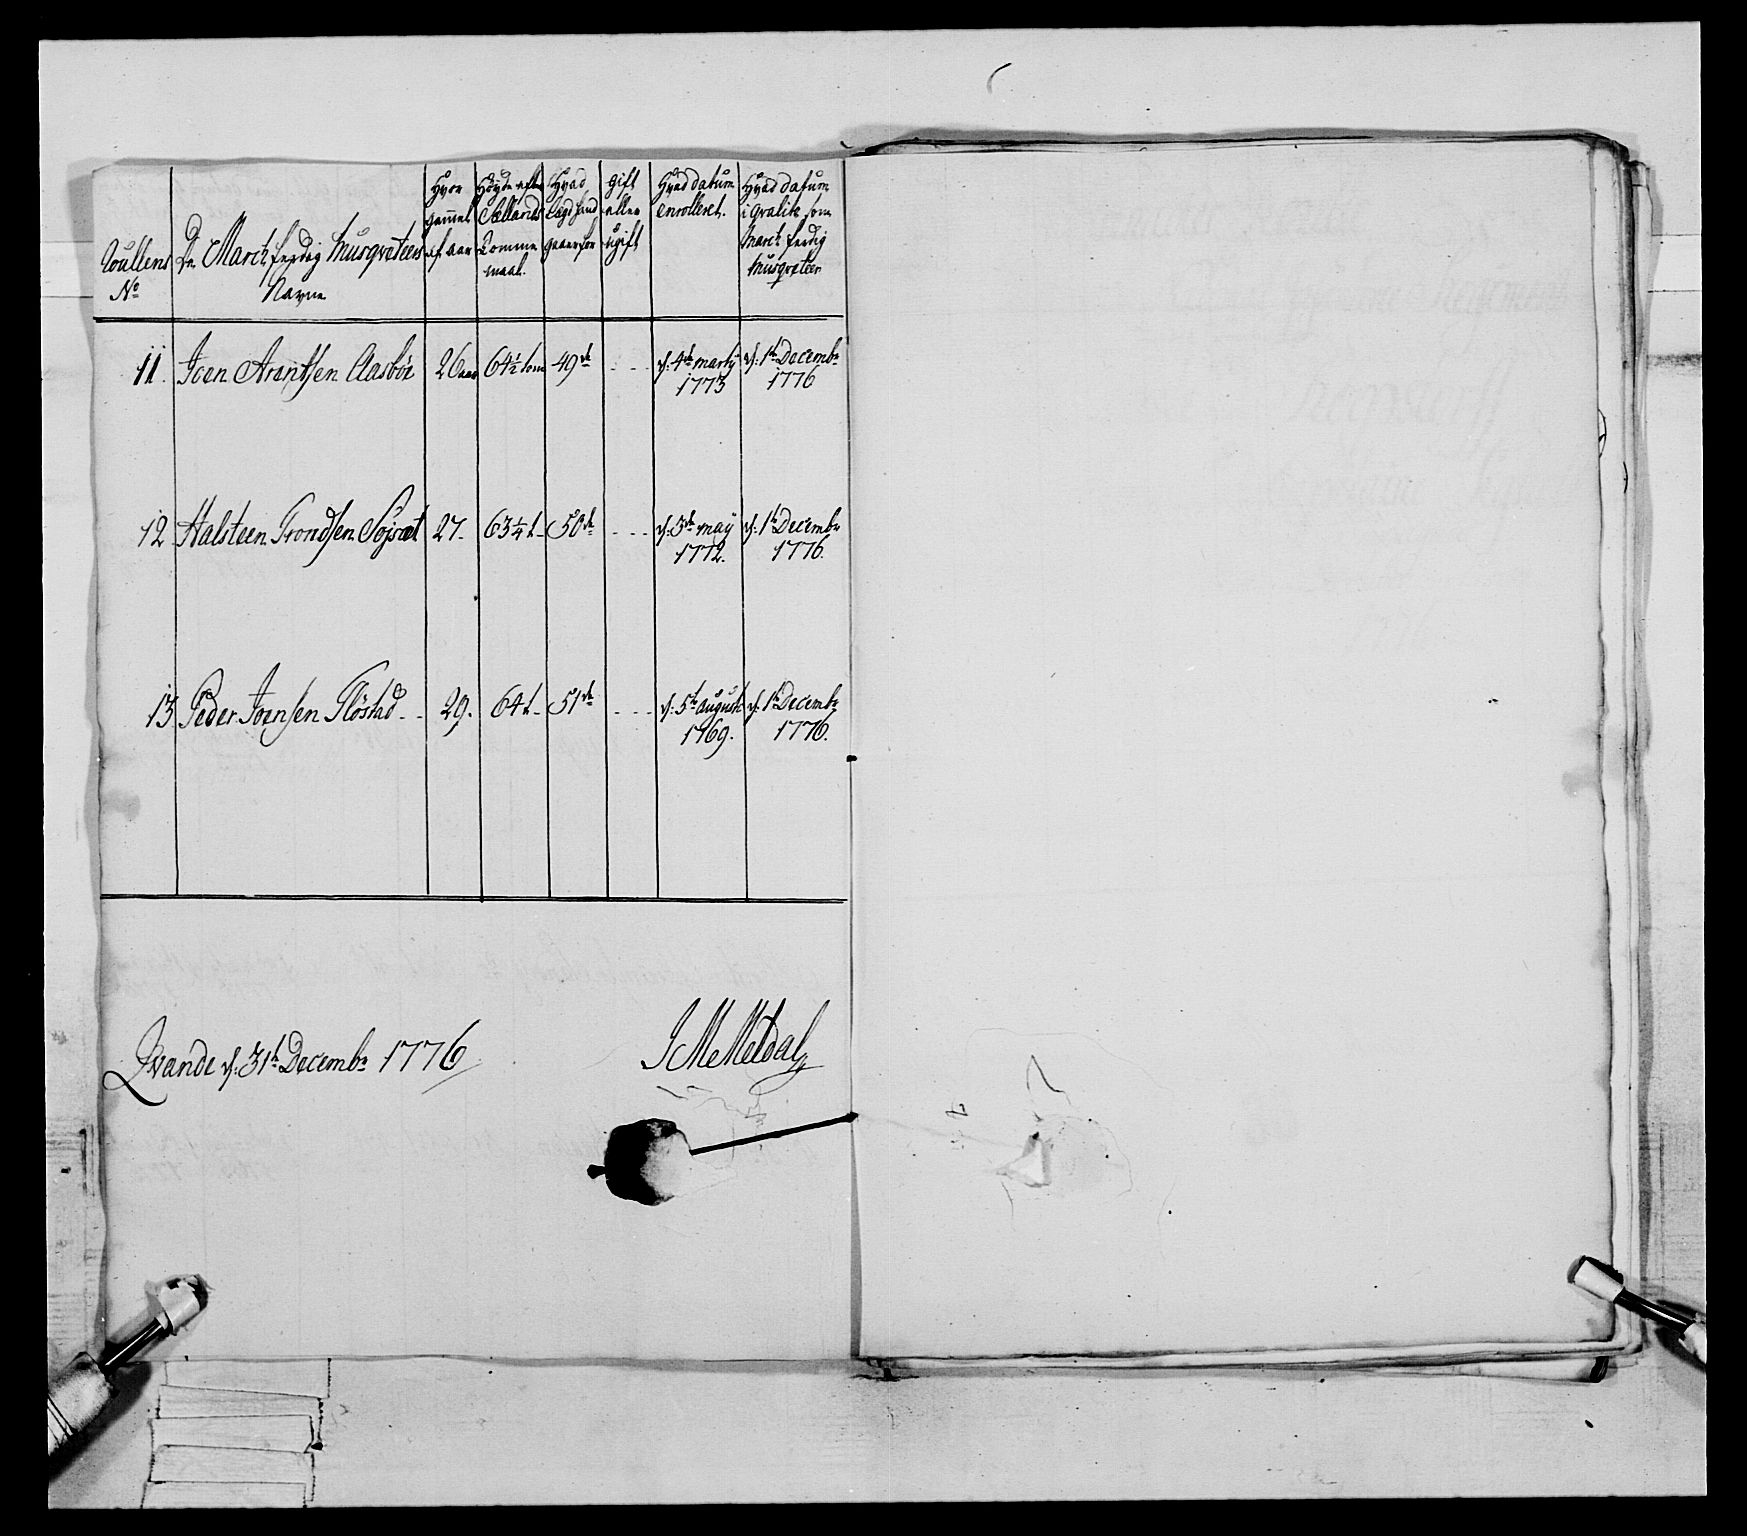 Roullens
No
De March færdig Musqveteers
Navne
Hvor
gammel
af aar
Høyde efter
Sællands
Tomme
maal.
Hvad
Lægd hand
staaer for
Gift
eller
ugift
Hvad datum
enrolleret.
Hvad datum
i qvalite som
March færdig
Musqveteer
11. Joen Arentsen Aasbøe 26 aar 64½ tom 49de - - - d: 4de marty 1773 d: 1te Decembr 1776
12 Halsteen Trondsen Søjset 27- 63¼ t- 50de - - - d: 3de maÿ 1772. d: 1te Decembr 1776.
13 Peder Joensen Fløstad - - 29. 64 t- 51de - - - d: 5te august 1769. d: 1te Decembr 1776.
Qvande d: 31te Decembr 1776